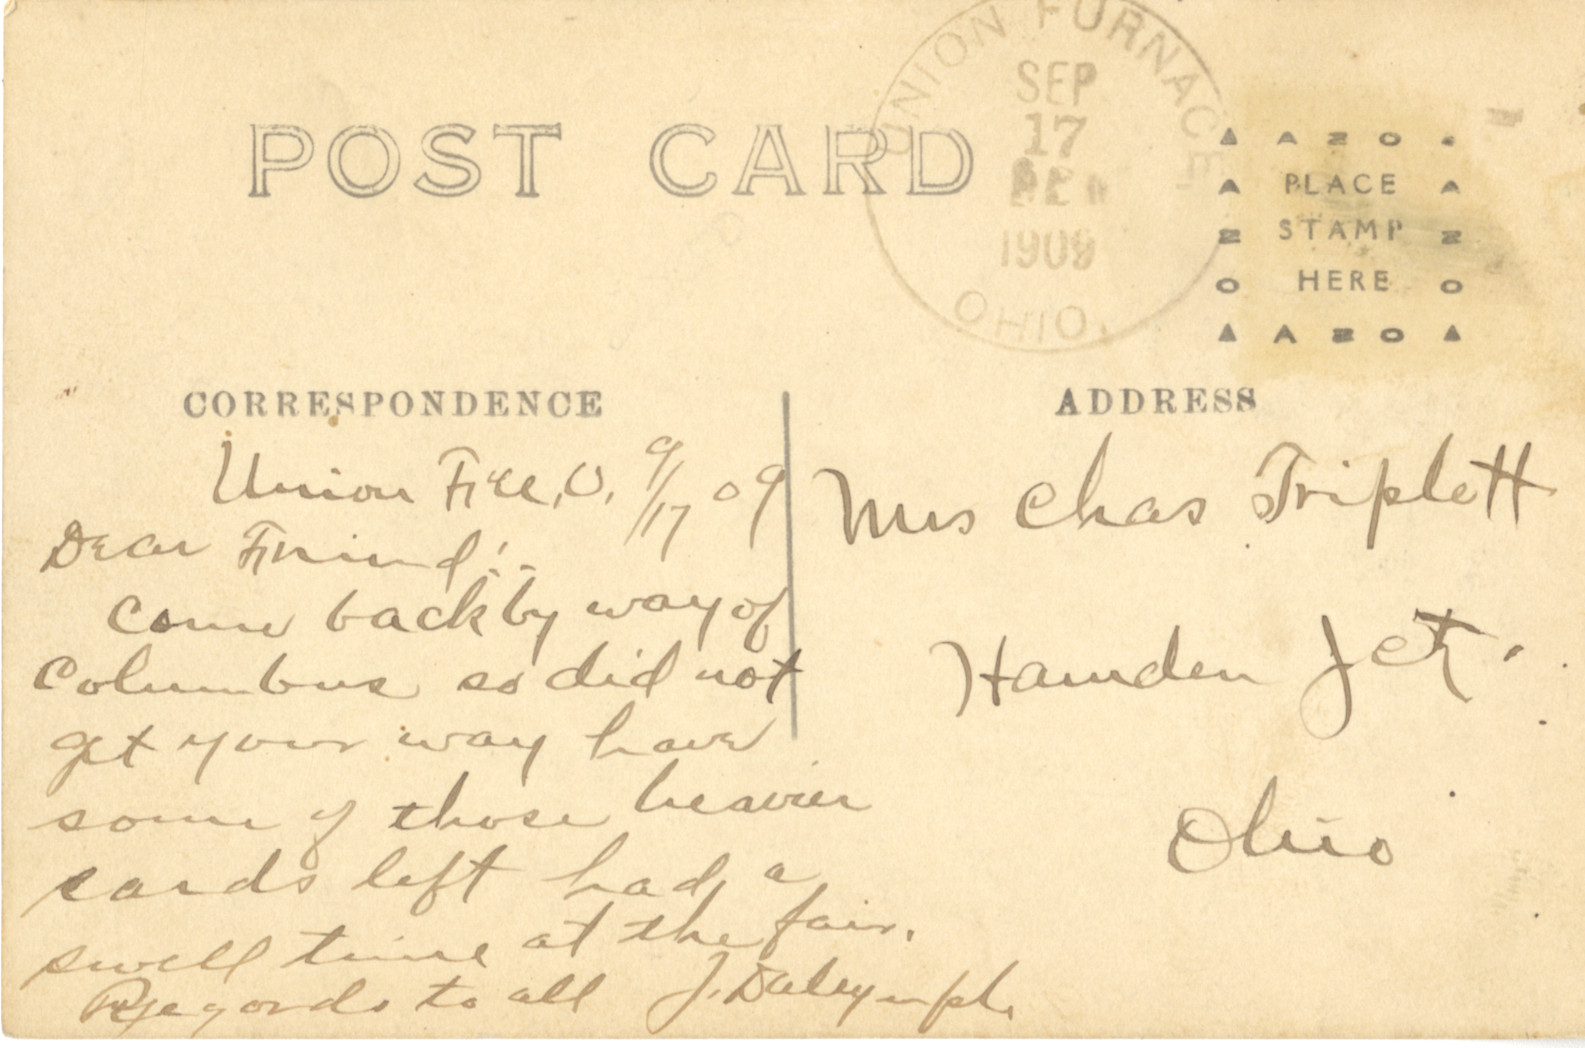 POST CARD
UNION FURNACE
SEP
17
1909
OHIO.
AZO
PLACE
STAMP
HERE
AZO
CORRESPONDENCE
ADDRESS
Union Fce, O. 9/17 09
Dear Friend:-
Come back by way of
Columbus so did not
get your way have
some of those heavier
cards left had a
swell time at the fair.
Regards to all J. Dalrymple
Mrs Chas Triplett
Hamden Jct.
Ohio